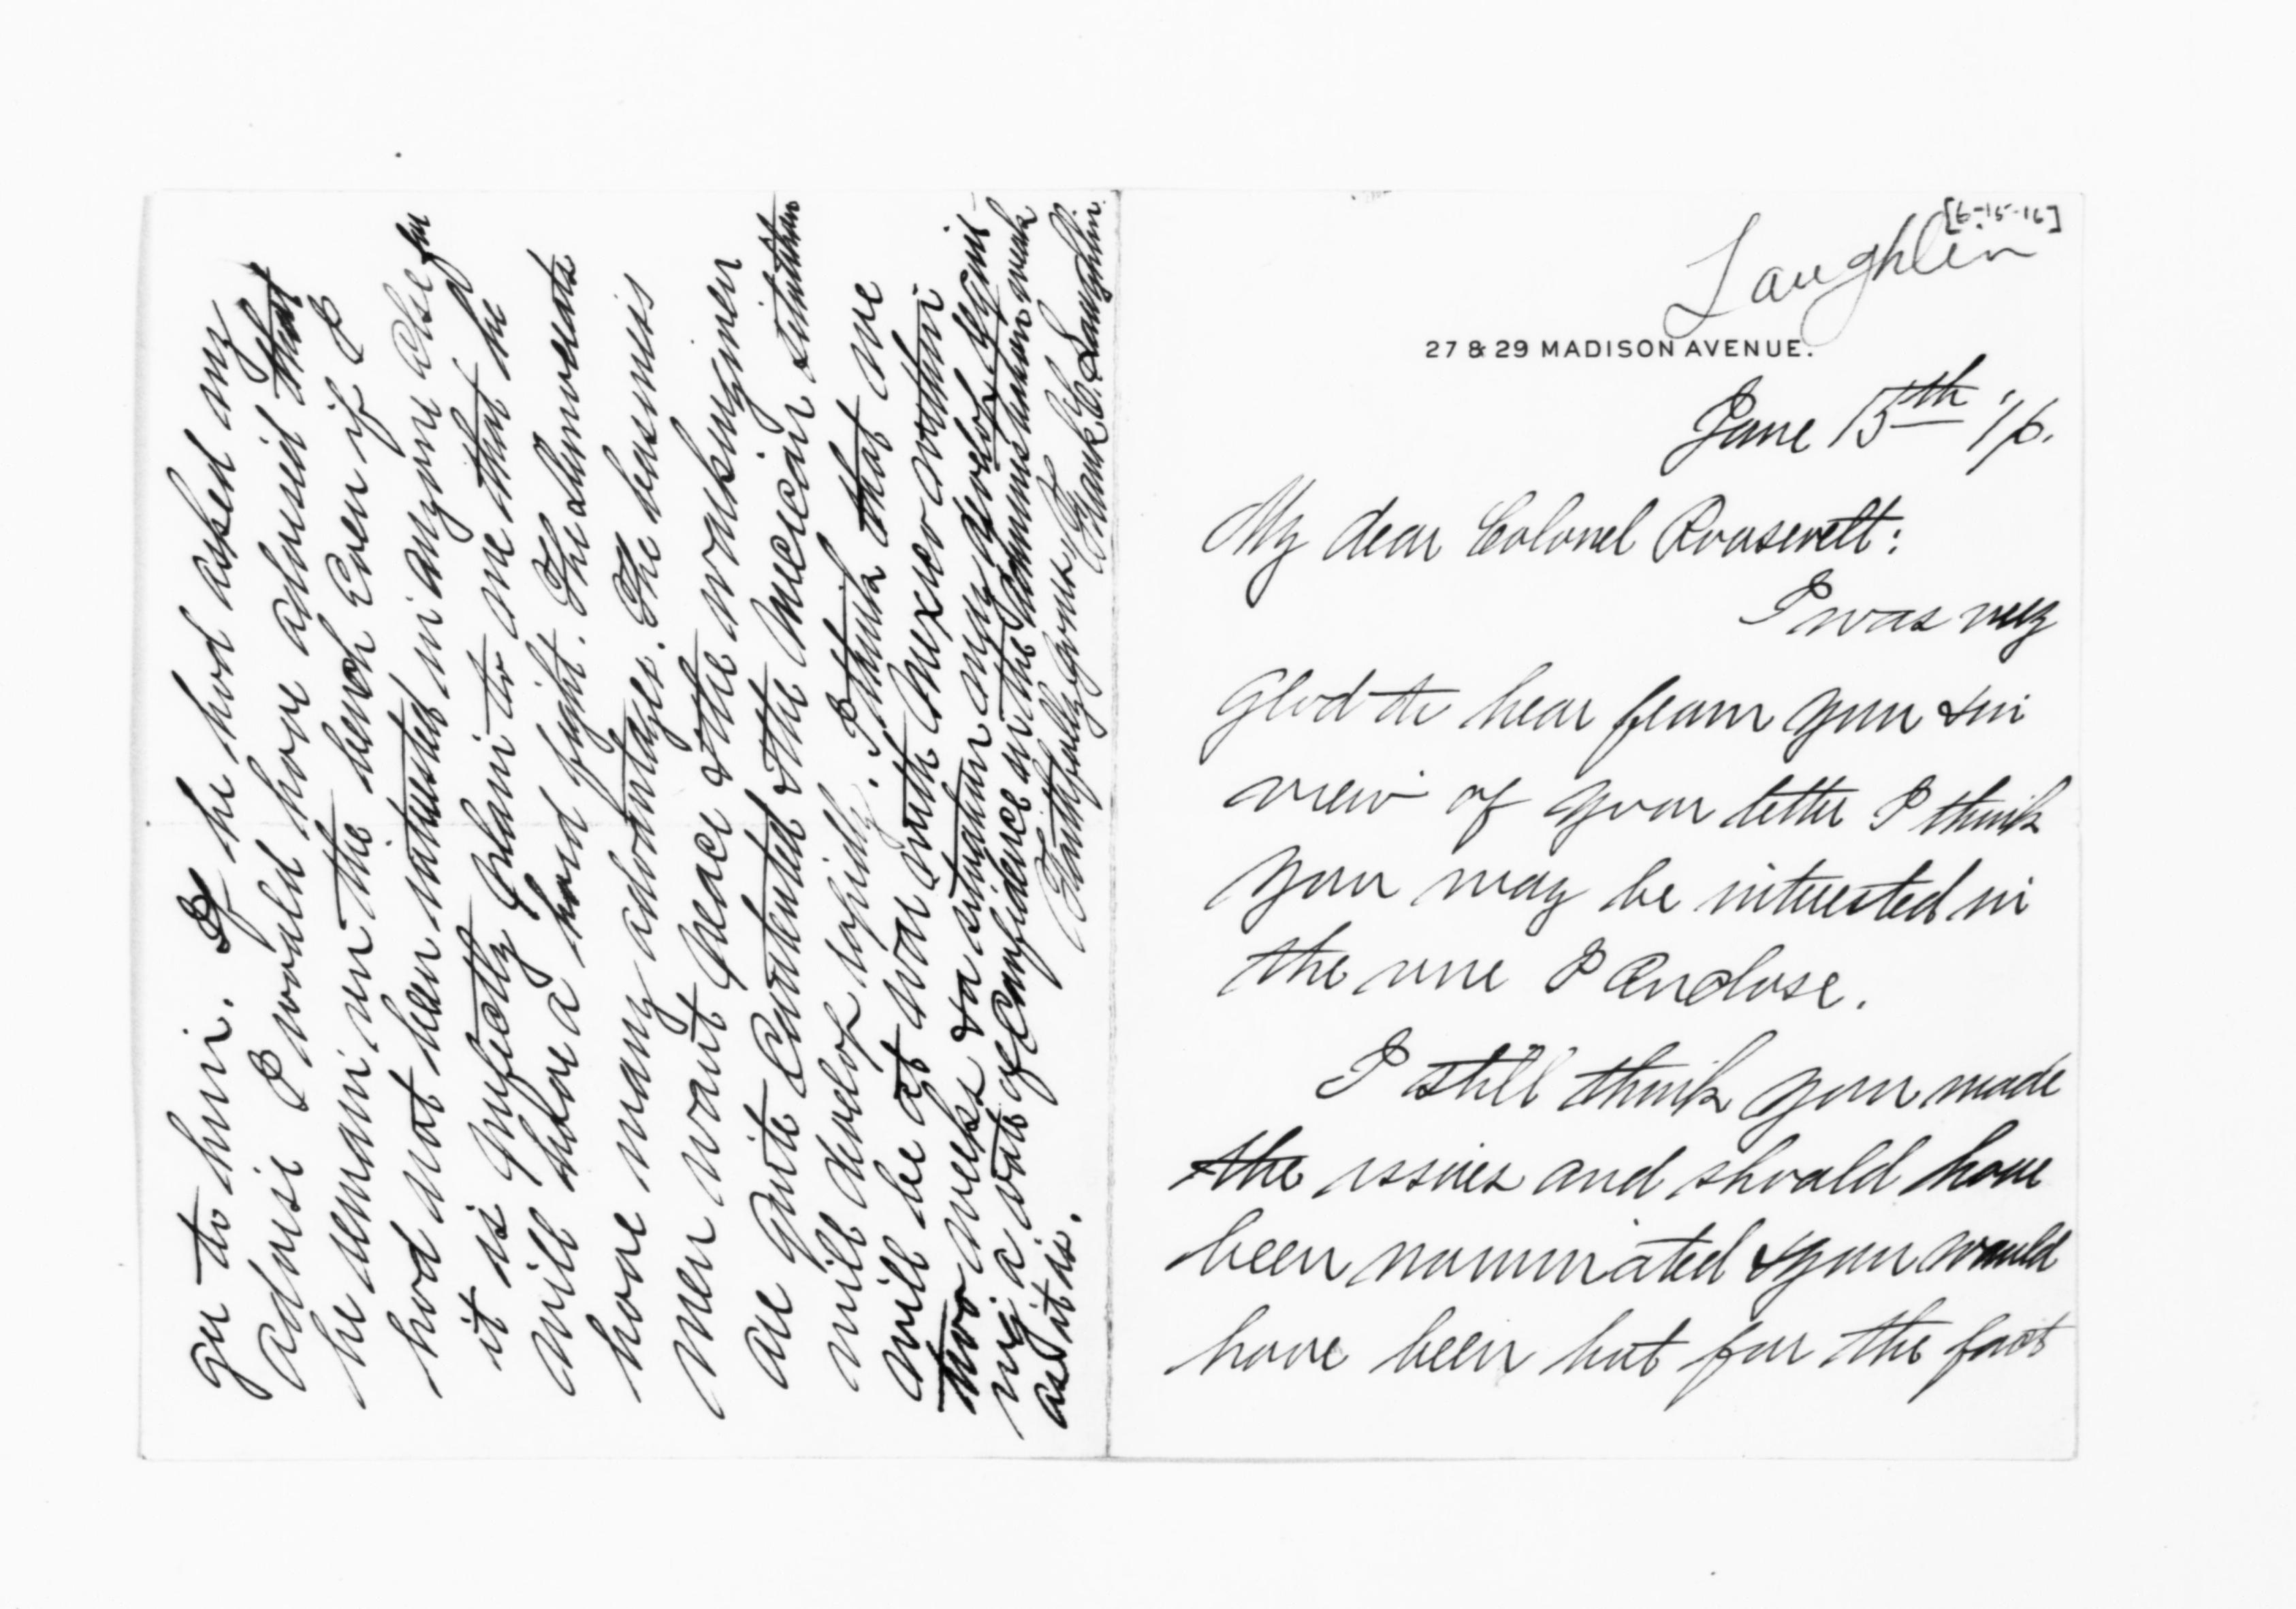 [6-15-16]
Laughlin
27 & 29 MADISON AVENUE.
June 15th '16.
My dear Colonel Roosevelt:
I was very
glad to hear from you & in
view of your letter I think
you may be interested in
the one I enclose.
I still think you made
the issues and should have
been nominated & you would
have been but for the fact
go to him. If he had asked my
advise I would have advised that
he remain on the bench even if I
had not been interested in anyone else for
it is perfectly plain to me that he
will have a hard fight. The democrats
have many advantages. The business
men want peace & the workingmen
are quite contented & the Mexican situation
will develop rapidly. I think that we
will be at war with Mexico within
two weeks & a situation may develop requir-
ing a vote of confidence in the administration weak
as it is.
Faithfully yours,
Frank C. Laughlin.